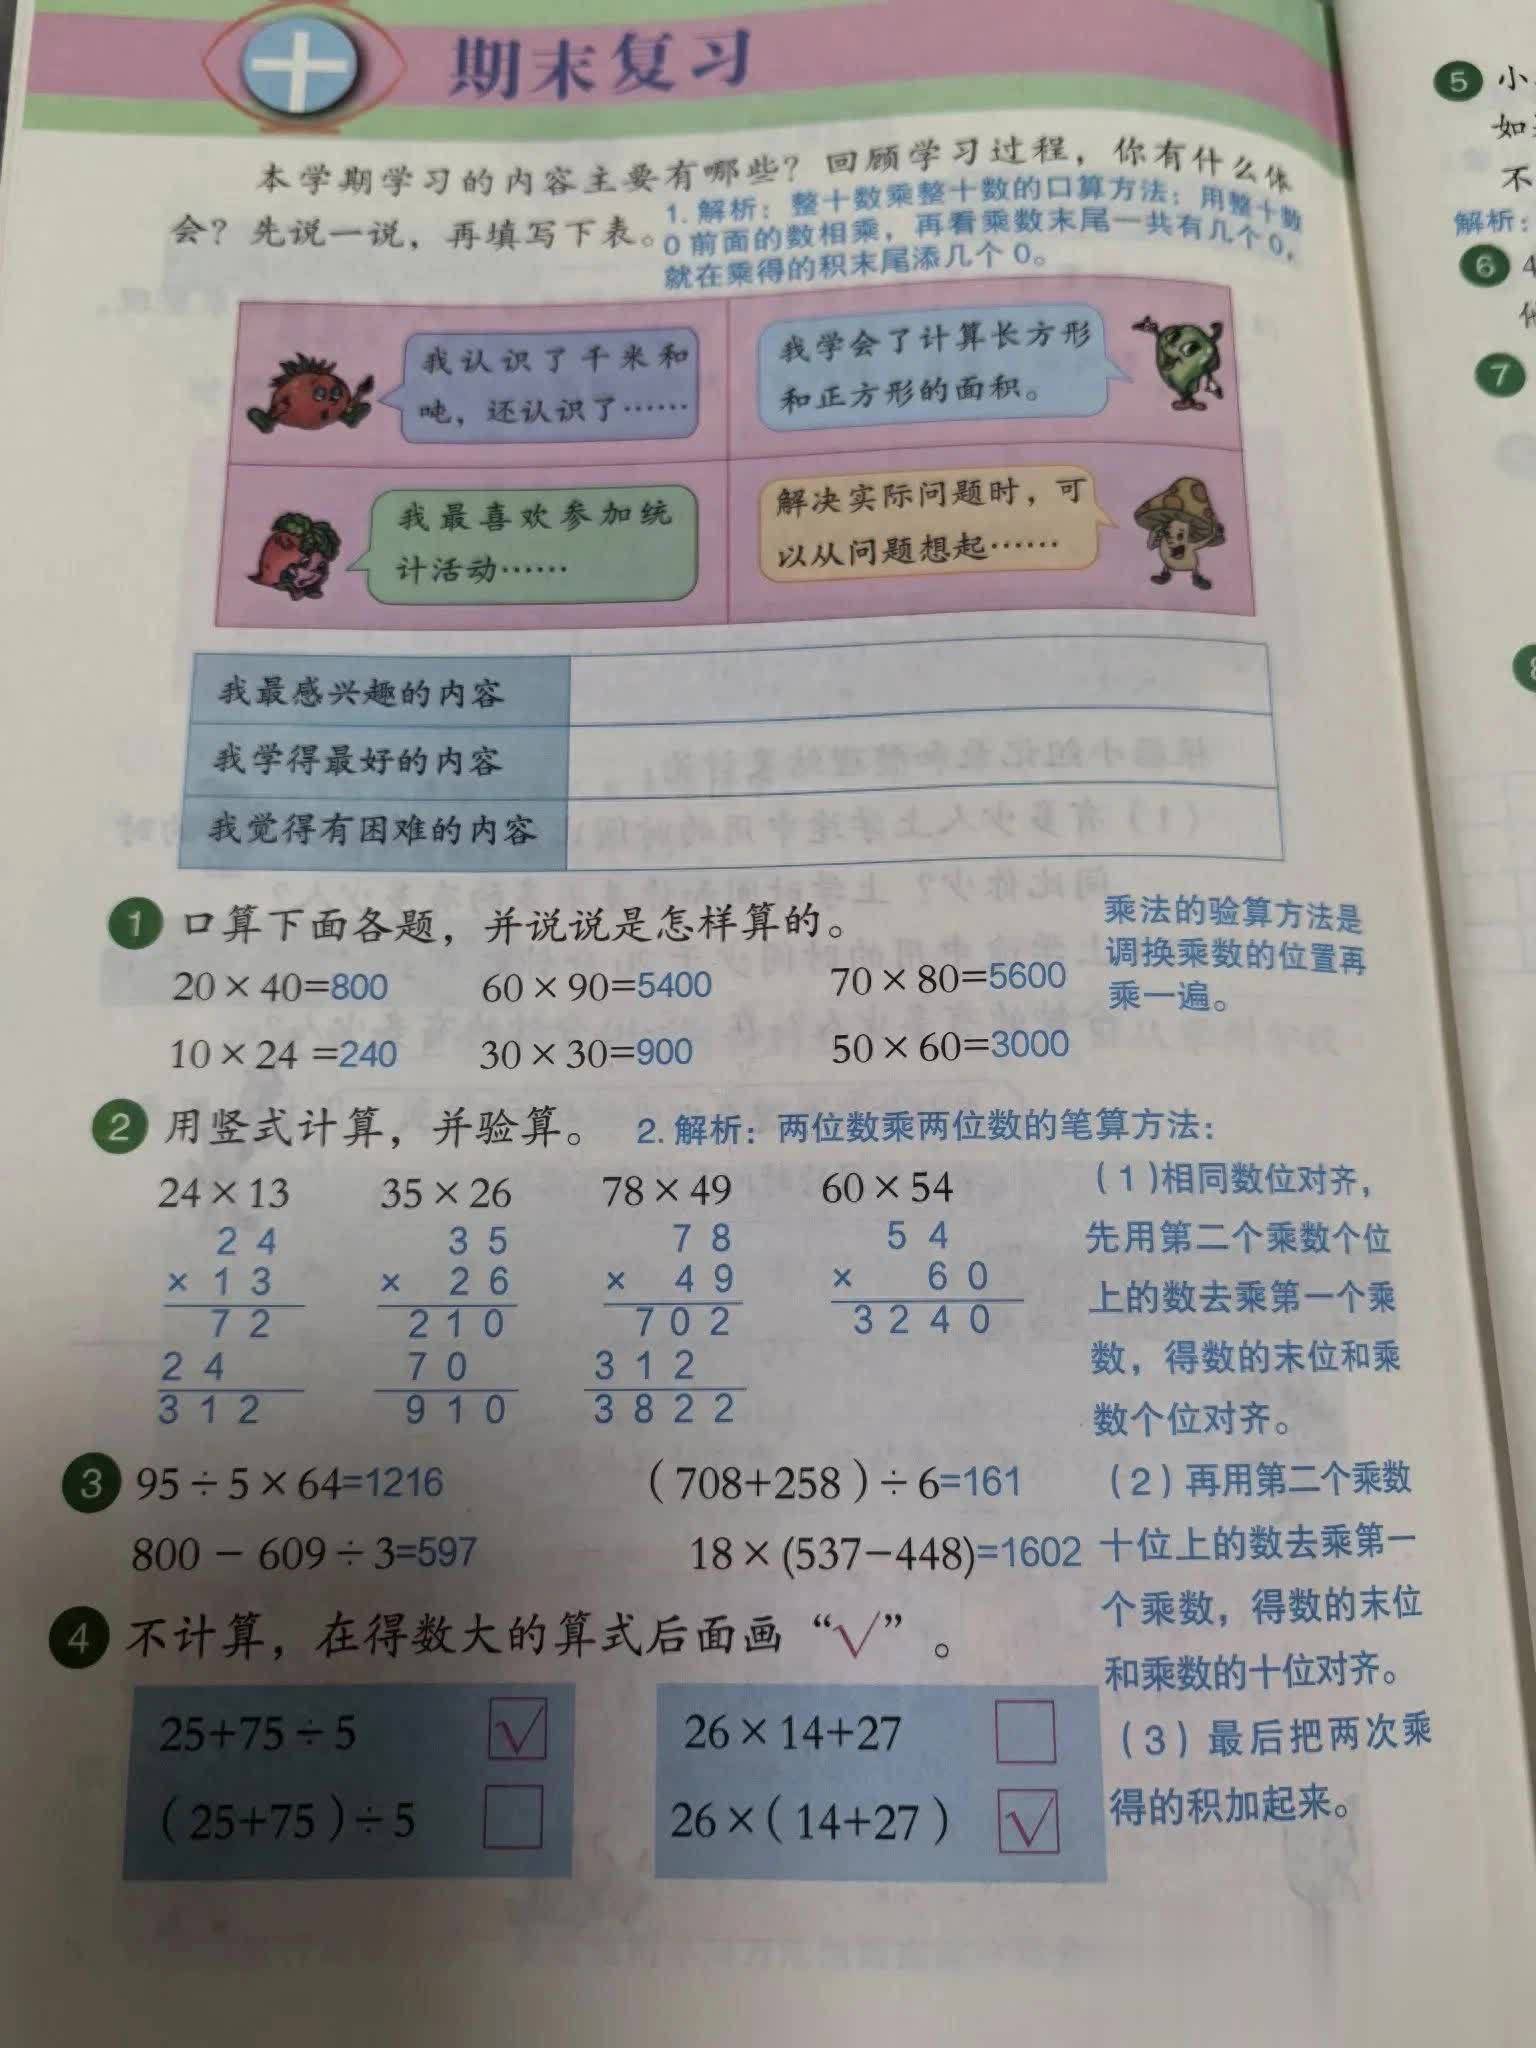 期末复习
本学期学习的内容主要有哪些？回顾学习过程，你有什么体
会？先说一说，再填写下表。
1. 解析：整十数乘整十数的口算方法：用整十数
0 前面的数相乘，再看乘数末尾一共有几个 0，
就在乘得的积末尾添几个 0。
我认识了千米和
吨，还认识了……
我学会了计算长方形
和正方形的面积。
我最喜欢参加统
计活动……
解决实际问题时，可
以从问题想起……
我最感兴趣的内容
我学得最好的内容
我觉得有困难的内容
1 口算下面各题，并说说是怎样算的。
20×40=800 60×90=5400 70×80=5600
10×24=240 30×30=900 50×60=3000
乘法的验算方法是
调换乘数的位置再
乘一遍。
2 用竖式计算，并验算。 2. 解析：两位数乘两位数的笔算方法：
24×13 35×26 78×49 60×54
24 35 78 54
×13 ×26 ×49 ×60
72 210 702 3240
24 70 312
312 910 3822
（1）相同数位对齐，
先用第二个乘数个位
上的数去乘第一个乘
数，得数的末位和乘
数个位对齐。
（2）再用第二个乘数
十位上的数去乘第一
个乘数，得数的末位
和乘数的十位对齐。
（3）最后把两次乘
得的积加起来。
3 95÷5×64=1216 （708+258）÷6=161
800－609÷3=597 18×(537−448)=1602
4 不计算，在得数大的算式后面画“√”。
25+75÷5 √ 26×14+27
（25+75）÷5 26×（14+27） √
5 小
如
不
解析：
6 4
7